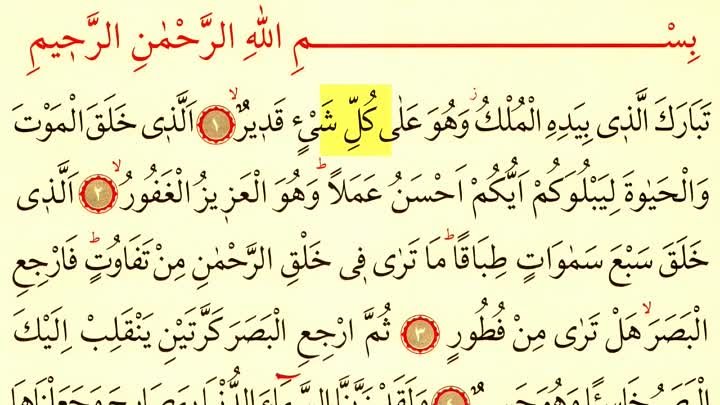 بِسْمِ اللهِ الرَّحْمٰنِ الرَّح۪يمِ
تَبَارَكَ الَّذ۪ي بِيَدِهِ الْمُلْكُۘ وَهُوَ عَلٰى كُلِّ شَيْءٍ قَد۪يرٌۙ ﴿١﴾ اَلَّذ۪ي خَلَقَ الْمَوْتَ
وَالْحَيٰوةَ لِيَبْلُوَكُمْ اَيُّكُمْ اَحْسَنُ عَمَلًاۜ وَهُوَ الْعَز۪يزُ الْغَفُورُۙ ﴿٢﴾ اَلَّذ۪ي
خَلَقَ سَبْعَ سَمٰوَاتٍ طِبَاقًاۜ مَا تَرٰى ف۪ي خَلْقِ الرَّحْمٰنِ مِنْ تَفَاوُتٍۜ فَارْجِعِ
الْبَصَرَۙ هَلْ تَرٰى مِنْ فُطُورٍ ﴿٣﴾ ثُمَّ ارْجِعِ الْبَصَرَ كَرَّتَيْنِ يَنْقَلِبْ اِلَيْكَ